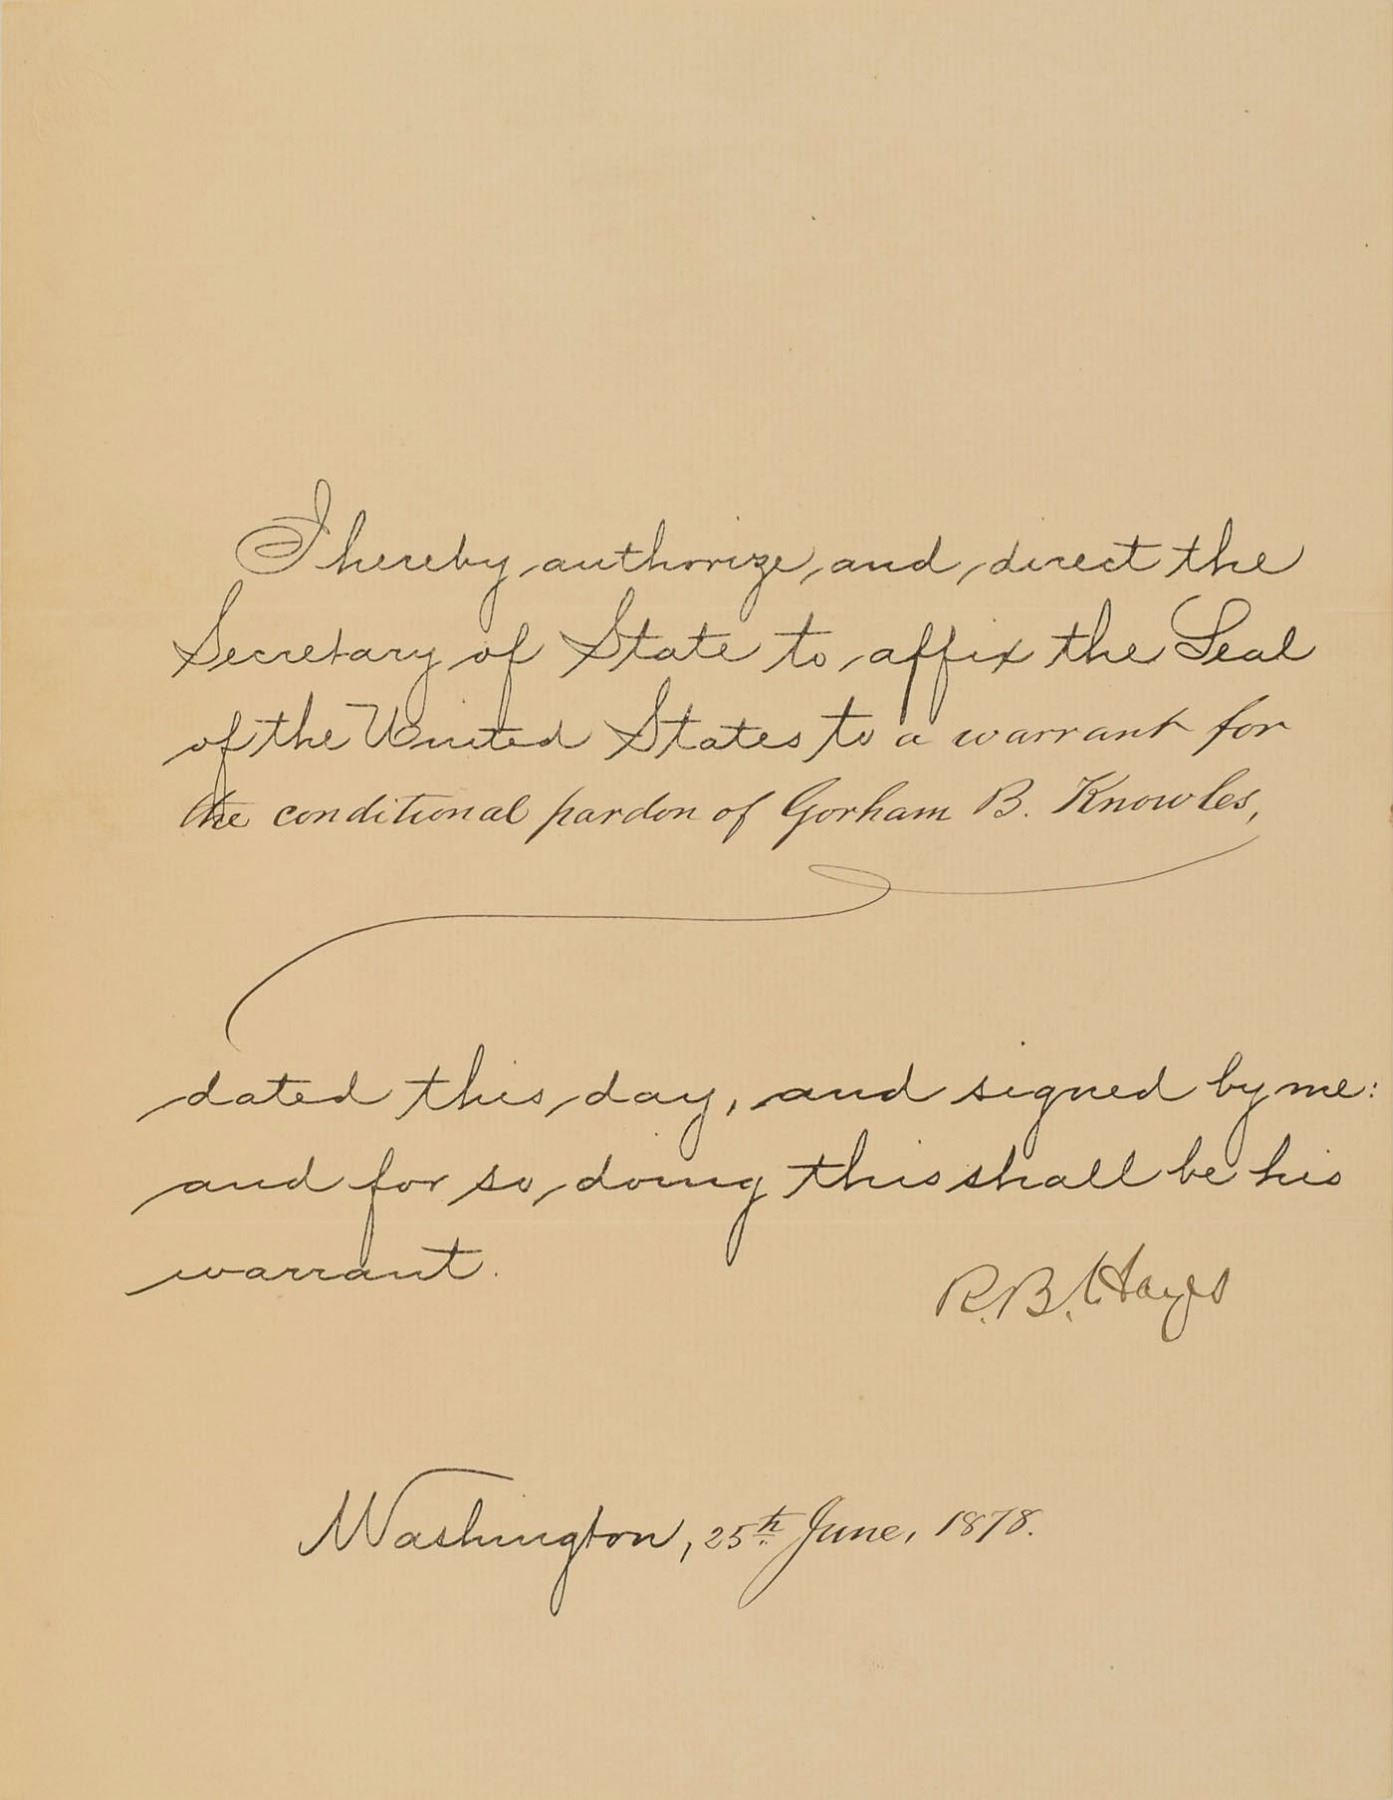 I hereby authorize and direct the
Secretary of State to affix the Seal
of the United States to a warrant for
the conditional pardon of Gorham B. Knowles,
dated this day, and signed by me:
and for so doing this shall be his
warrant.
R. B. Hayes
Washington, 25th June, 1878.